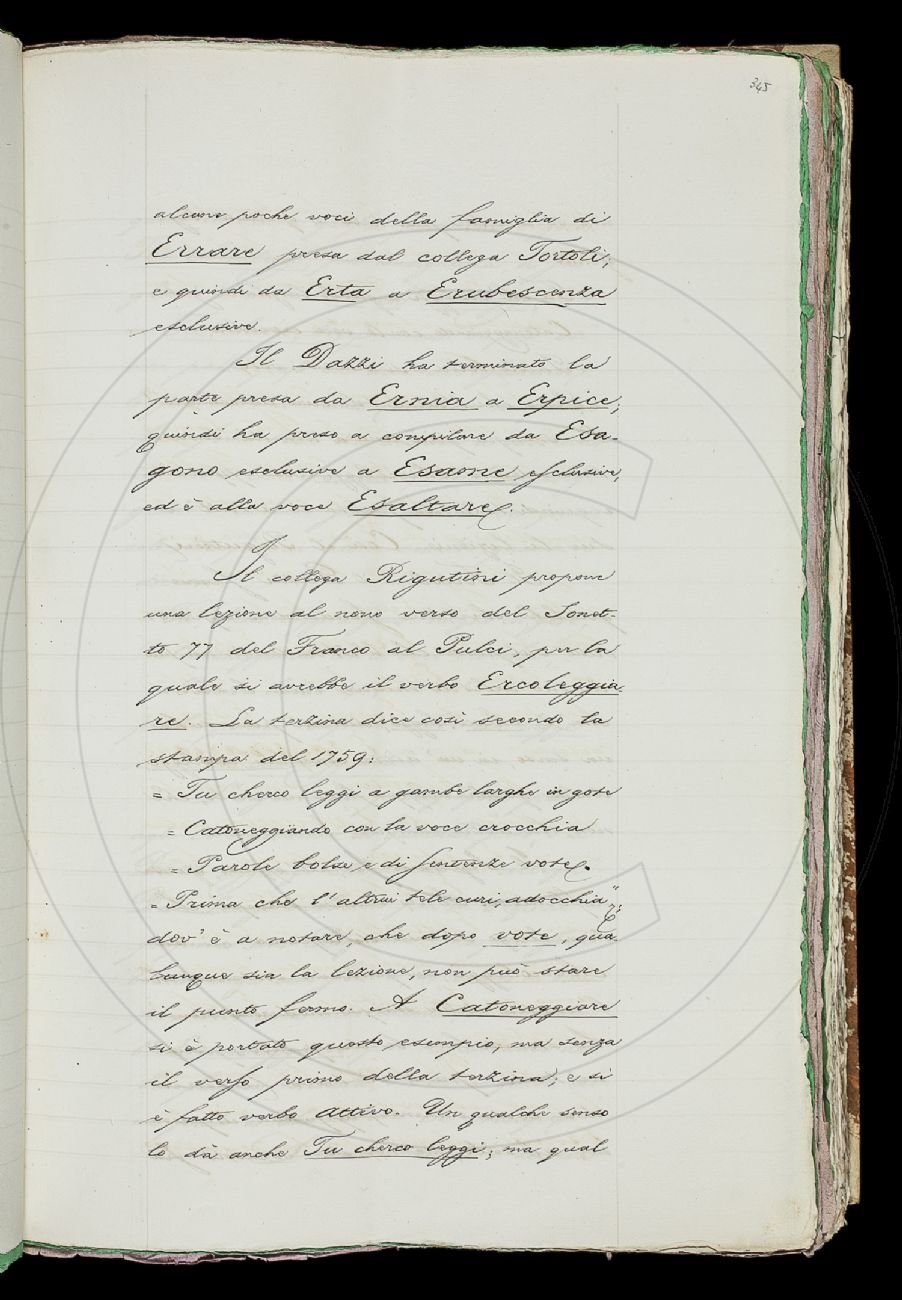 345
alcune poche voci della famiglia di
Errare presa dal collega Tortoli;
e quindi da Erta a Erubescenza
esclusive.
Il Dazzi ha terminato la
parte presa da Ernia a Erpice;
quindi ha preso a compilare da Esa-
gono esclusive a Esame esclusive,
ed è alla voce Esaltare.
Il collega Rigutini propone
una lezione al nono verso del Sonet-
to 77 del Franco al Pulci, per la
quale si avrebbe il verbo Ercoleggia
re. La terzina dice così secondo la
stampa del 1759:
= Tu cherco leggi a gambe larghe in gote
= Catoneggiando con la voce crocchia
= Parole bolse e di sentenze vote.
= Prima che l'altrui tele curi, adocchia";
dov'è a notare, che dopo vote, qua-
lunque sia la lezione, non può stare
il punto fermo. A Catoneggiare
si è portato questo esempio, ma senza
il verso primo della terzina; e si
è fatto verbo attivo. Un qualche senso
lo dà anche Tu cherco leggi; ma qual